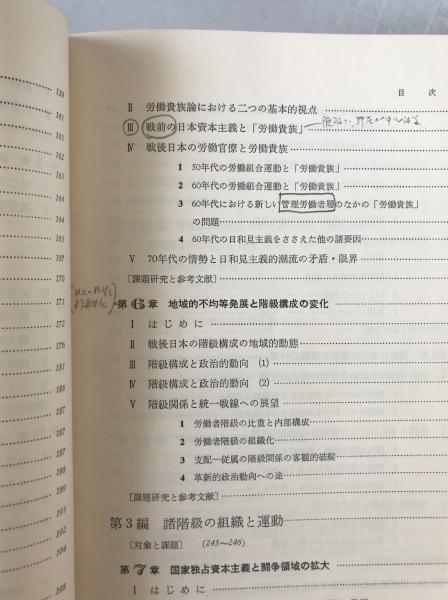 目 次
Ⅱ 労働貴族論における二つの基本的視点
Ⅲ 戦前の日本資本主義と「労働貴族」
Ⅳ 戦後日本の労働官僚と労働貴族
1 50年代の労働組合運動と「労働貴族」
2 60年代の労働組合運動と「労働貴族」
3 60年代における新しい管理労働者層のなかの「労働貴族」
の問題
4 60年代の日和見主義をささえた他の諸要因
Ⅴ 70年代の情勢と日和見主義的潮流の矛盾・限界
〔課題研究と参考文献〕
第6章 地域的不均等発展と階級構成の変化
Ⅰ はじめに
Ⅱ 戦後日本の階級構成の地域的動態
Ⅲ 階級構成と政治的動向 (1)
Ⅳ 階級構成と政治的動向 (2)
Ⅴ 階級関係と統一戦線への展望
1 労働者階級の比重と内部構成
2 労働者階級の組織化
3 支配―従属の階級関係の客観的破綻
4 革新的政治動向への途
〔課題研究と参考文献〕
第3編 諸階級の組織と運動
〔対象と課題〕 (243〜246)
第7章 国家独占資本主義と闘争領域の拡大
Ⅰ はじめに
159
161
161
162
163
165
167
170
171
172
176
181
186
187
187
187
188
290
291
292
294
298